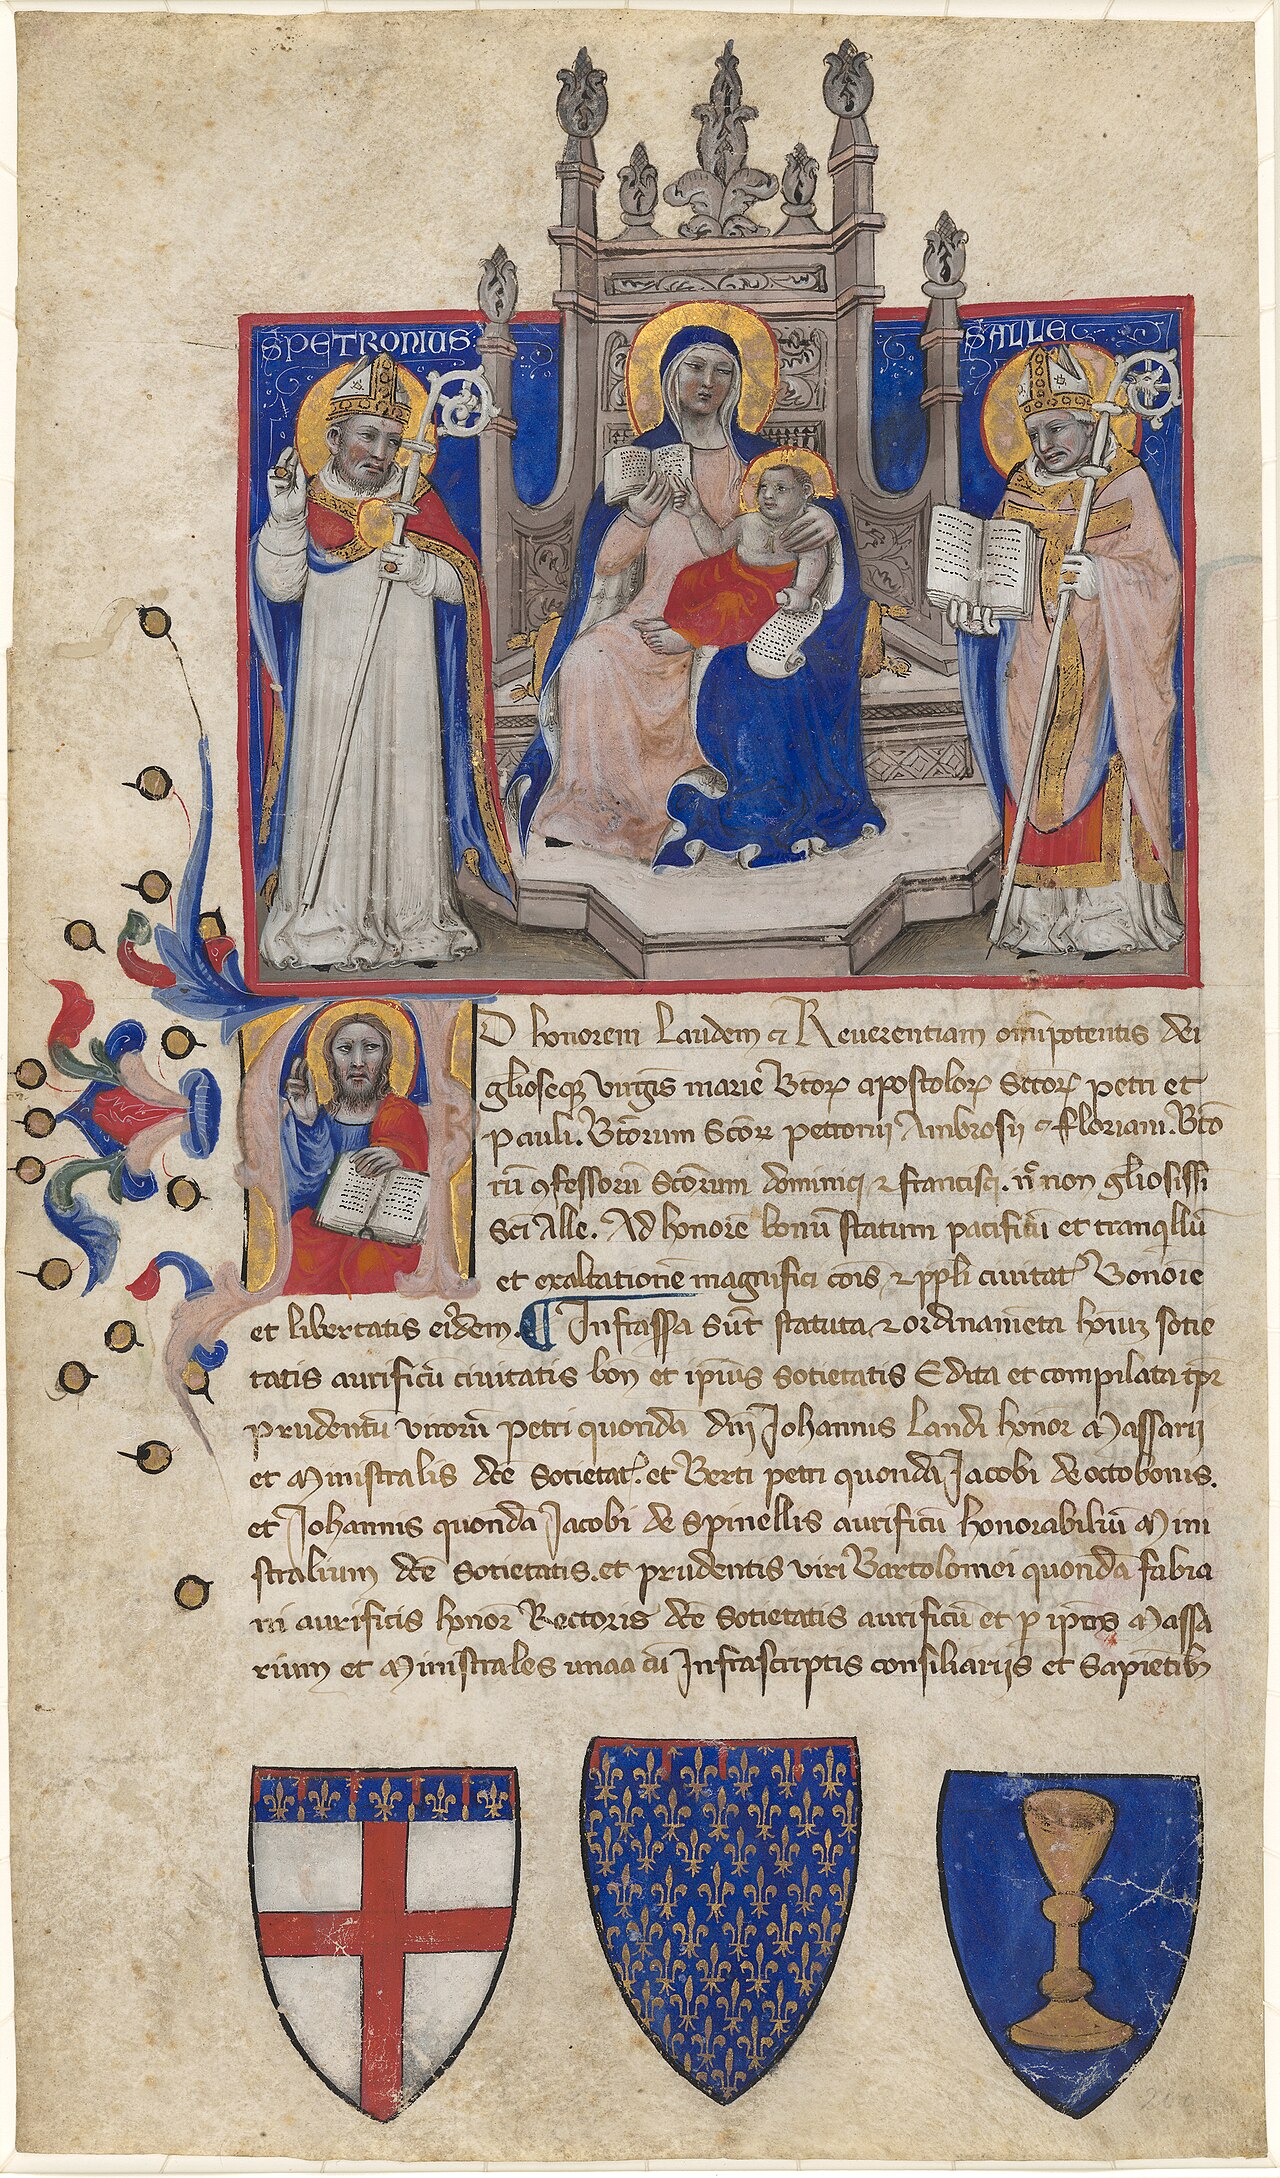 S PETRONIUS
S ALLE
D honorem Laudem & Reuerentiam omīpotentis dei
glioseqȝ virgīs marie Btorꝝ apostolorꝝ Sctorꝝ petri et
pauli. Btorum Scorꝝ petronij Ambrosij & floriani. Bto
rū ꝯfessorū Sctorum dominici & francisci. non gliosissi
Sci Alle. Ad honorē bonū statum pacificū et tranqllū
et exaltationē magnifici cois & ppli ciuitat Bononie
et libertatis eidem. ¶ Infrassa sūt statuta & ordinamēta hōiuȝ socie
tatis aurificū ciuitatis bon et ipius Societatis Edita et compilata
prudentū virorū petri quondā dnj Johannis Landi honor Massarij
et Ministralis dcē Societat. et Berti petri quondā Jacobi de octobonis.
et Johannis quondā Jacobi de Spinellis aurificū honorabiliū Mini
stralium dcē Societatis. et prudentis viri Bartolomei quondā fabia
ni aurificis honor Rectoris dcē Societatis aurificū et p ipos Massa
rium et Ministrales unaa cū Infrascriptis consiliariis et Sapiētib